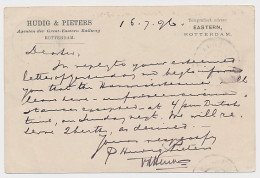 HUDIG & PIETERS
Agenten der Great-Eastern Railway
ROTTERDAM.
Telegraphisch adres:
EASTERN,
ROTTERDAM.
18.7.96.
Dear Sir,
In reply to your esteemed
letter of yesterday we beg to inform
you that the
leave here - unforeseen circum-
stances excepted - at 4 p.m. Dutch
time, on Sunday next. We will re-
serve 2 berths, as desired.
Yours respectfully
p Hudig & Pieters